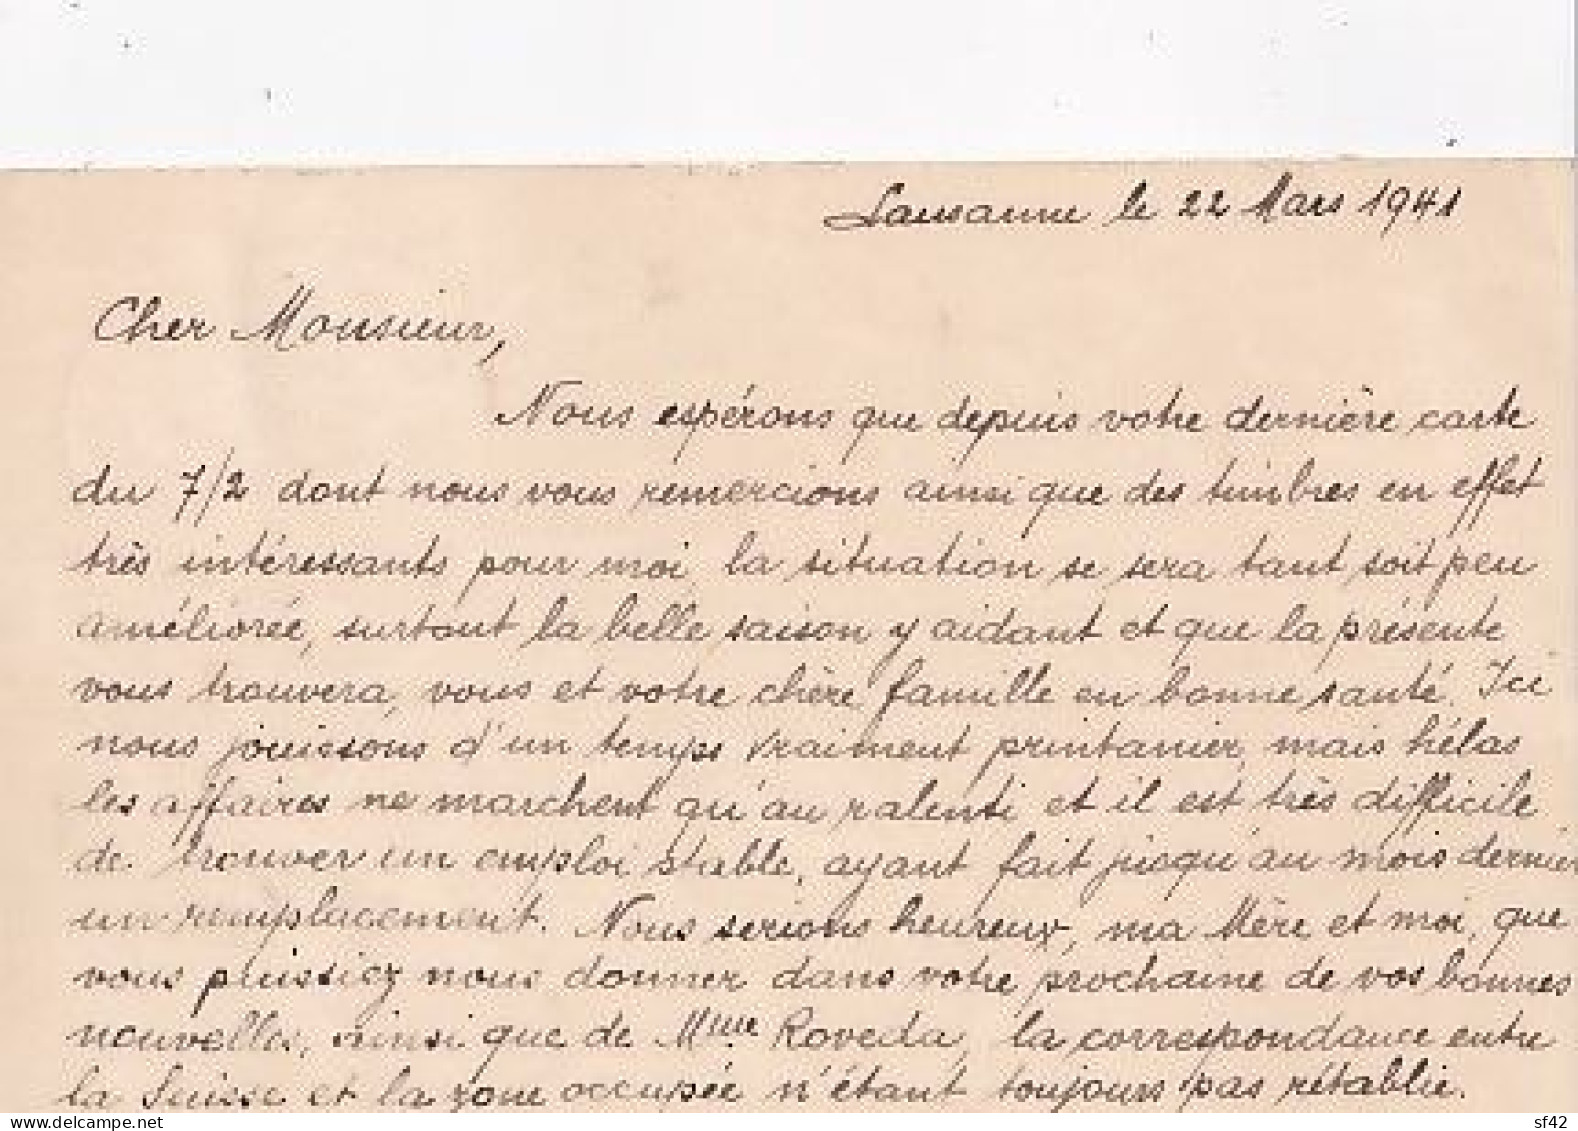 Lausanne le 22 Mars 1941
Cher Monsieur,
Nous espérons que depuis votre dernière carte
du 7/2 dont nous vous remercions ainsi que des timbres en effet
très intéressants pour moi, la situation se sera tant soit peu
améliorée, surtout la belle saison y aidant et que la présente
vous trouvera, vous et votre chère famille en bonne santé. Ici
nous jouissons d'un temps vraiment printanier, mais hélas
les affaires ne marchent qu'au ralenti et il est très difficile
de trouver un emploi stable, ayant fait jusqu'au mois dernier
un remplacement. Nous serions heureux, ma Mère et moi, que
vous puissiez nous donner dans votre prochaine de vos bonnes
nouvelles, ainsi que de Mme Roveda, la correspondance entre
la Suisse et la zone occupée n'étant toujours pas rétablie.
delcampe.net
sf42